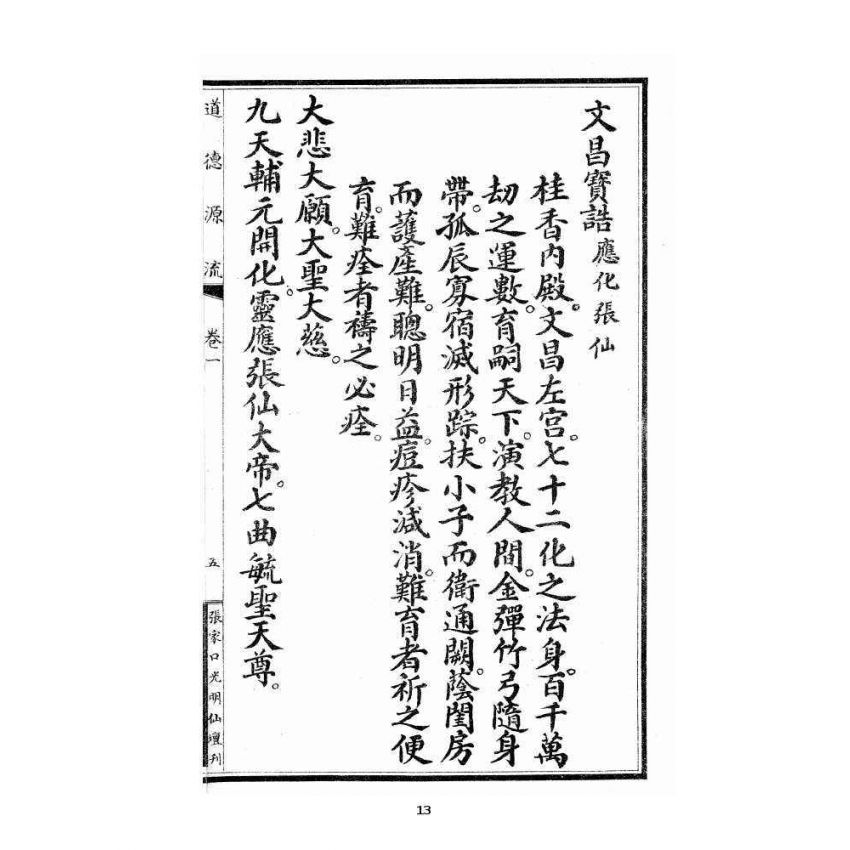 文昌寶誥 應化張仙
桂香內殿。文昌左宮。七十二化之法身。百千萬
劫之運數。育嗣天下。演教人間。金彈竹弓隨身
帶。孤辰寡宿滅形踪。扶小子而衛通關。蔭閨房
而護產難。聰明日益。痘疹減消。難育者祈之便
育。難痊者禱之必痊。
大悲大願。大聖大慈。
九天輔元開化。靈應張仙大帝。七曲毓聖天尊。
道德源流 卷一 五 張家口光明仙壇刊
13